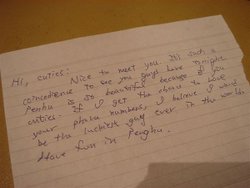 Hi, cuties:
Nice to meet you. It's such a
coincidence to see you guys here
Penhu is so beautiful because of you
cuties. If I get the chance to have
your phone numbers, I believe I would
be the luckiest guy ever in the world.
Have fun in Penghu.